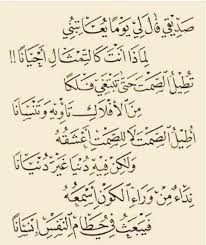 صَدِيقِي قَالَ لِي يَوْمًا يُعَاتِبُنِي
لِمَاذَا أَنْتَ كَالتِّمْثَالِ أَحْيَانًا !!
تُطِيلُ الصَّمْتَ حَتَّى تَنْتَقِي فَلَكًا
مِنَ الأَفْلَاكِ تَأْوِيهِ وَتَنْسَانَا
أُطِيلُ الصَّمْتَ لَا لِلصَّمْتِ أَعْشَقُهُ
وَلَكِنْ فِيهِ دُنْيَا غَيْرُ دُنْيَانَا
نِدَاءٌ مِنْ وَرَاءِ الْكَوْنِ أَسْمَعُهُ
فَيَبْعَثُ فِي حُطَامِ النَّفْسِ إِنْسَانًا